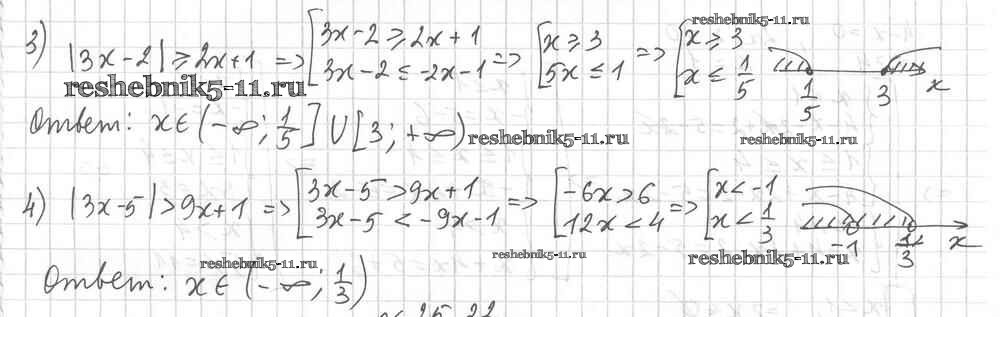 reshebnik5-11.ru
3) |3x-2|⩾2x+1 => [3x-2⩾2x+1 3x-2≤-2x-1 => [x⩾3 5x≤1 => [x⩾3 x≤1/5 1/5 3 x
reshebnik5-11.ru
Ответ: x∈(-∞; 1/5]∪[3; +∞) reshebnik5-11.ru reshebnik5-11.ru
4) |3x-5|>9x+1 => [3x-5>9x+1 3x-5<-9x-1 => [-6x>6 12x<4 => [x<-1 x<1/3 -1 1/3 x
reshebnik5-11.ru reshebnik5-11.ru reshebnik5-11.ru
Ответ: x∈(-∞; 1/3)